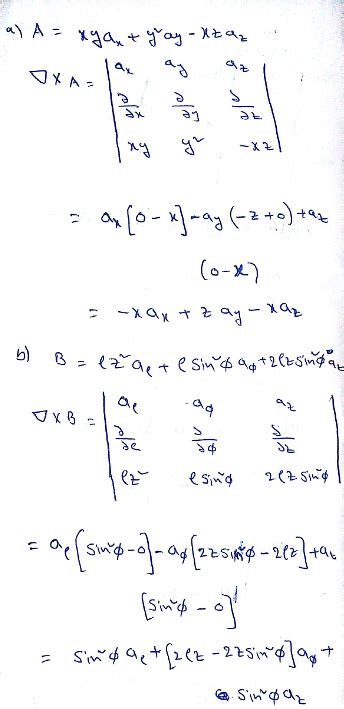 a) A = xyaₓ + y²ay - xza_z
∇ x A = | aₓ ay a_z |
| ∂/∂x ∂/∂y ∂/∂z |
| xy y² -xz |
= aₓ[0 - x] - ay(-z+0) + a_z
(0-x)
= -xaₓ + z ay - xa_z
b) B = ρz² a_ρ + ρ sin²φ a_φ + 2ρz sin²φ a_z
∇ x B = | a_ρ a_φ a_z |
| ∂/∂ρ ∂/∂φ ∂/∂z |
| ρz² ρ sin²φ 2ρz sin²φ |
= a_ρ[sin²φ - 0] - a_φ[2z sin²φ - 2ρz] + a_z
[sin²φ - 0]
= sin²φ a_ρ + [2ρz - 2z sin²φ] a_φ +
sin²φ a_z